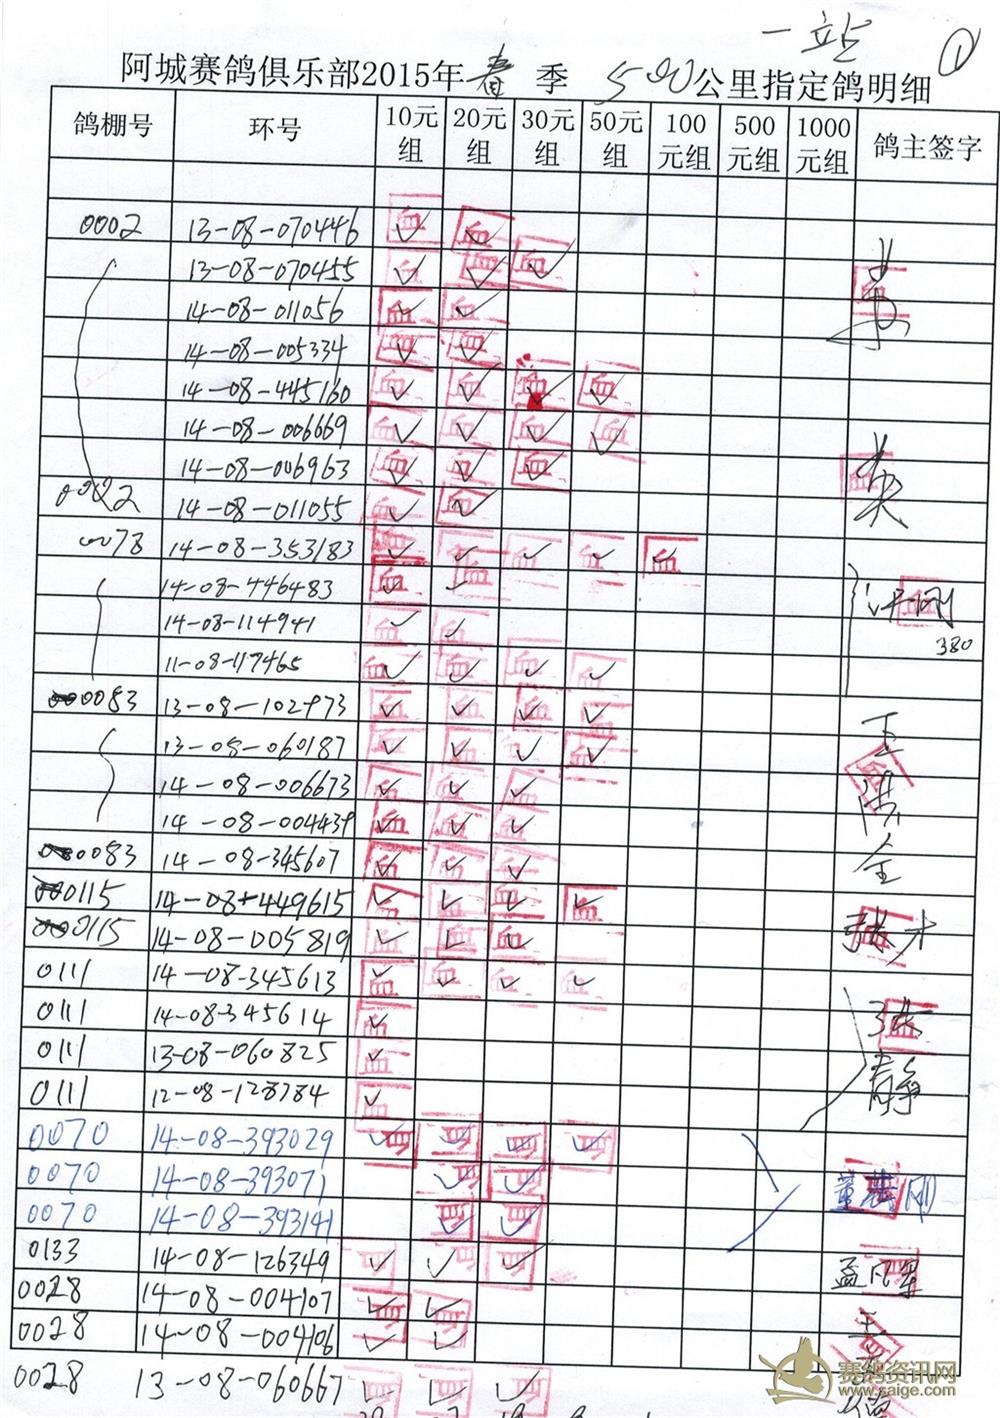 一站 ①
阿城赛鸽俱乐部2015年春季 500公里指定鸽明细
鸽棚号 环号 10元组 20元组 30元组 50元组 100元组 500元组 1000元组 鸽主签字
0002 13-08-070446 ✓ ✓
13-08-070455 ✓ ✓ ✓
14-08-011056 ✓ ✓
14-08-005334 ✓ ✓
14-08-445160 ✓ ✓ ✓ ✓
14-08-006669 ✓ ✓ ✓ ✓
14-08-006963 ✓ ✓ ✓
0002 14-08-011055 ✓ ✓
0078 14-08-353183 ✓ ✓ ✓ ✓ ✓
14-08-446483 ✓ ✓
14-08-114941 ✓ ✓
380
11-08-117465 ✓ ✓ ✓ ✓
0083 13-08-102973 ✓ ✓ ✓ ✓
13-08-060187 ✓ ✓ ✓ ✓
14-08-006673 ✓ ✓ ✓
14-08-004439 ✓ ✓ ✓
0083 14-08-345607 ✓ ✓ ✓
0115 14-08-449615 ✓ ✓ ✓ ✓
0115 14-08-005819 ✓ ✓ ✓
0111 14-08-345613 ✓ ✓ ✓ ✓
0111 14-08-345614 ✓ 张静
0111 13-08-060825 ✓
0111 12-08-128784 ✓
0070 14-08-393029 ✓ ✓ ✓ ✓
0070 14-08-393071 ✓ ✓
0070 14-08-393141 ✓ ✓
0133 14-08-126349 ✓ ✓ ✓ 孟凡军
0028 14-08-004107 ✓ ✓
0028 14-08-004106 ✓ ✓
0028 13-08-060667 ✓ ✓ ✓
赛鸽资讯网
www.saige.com